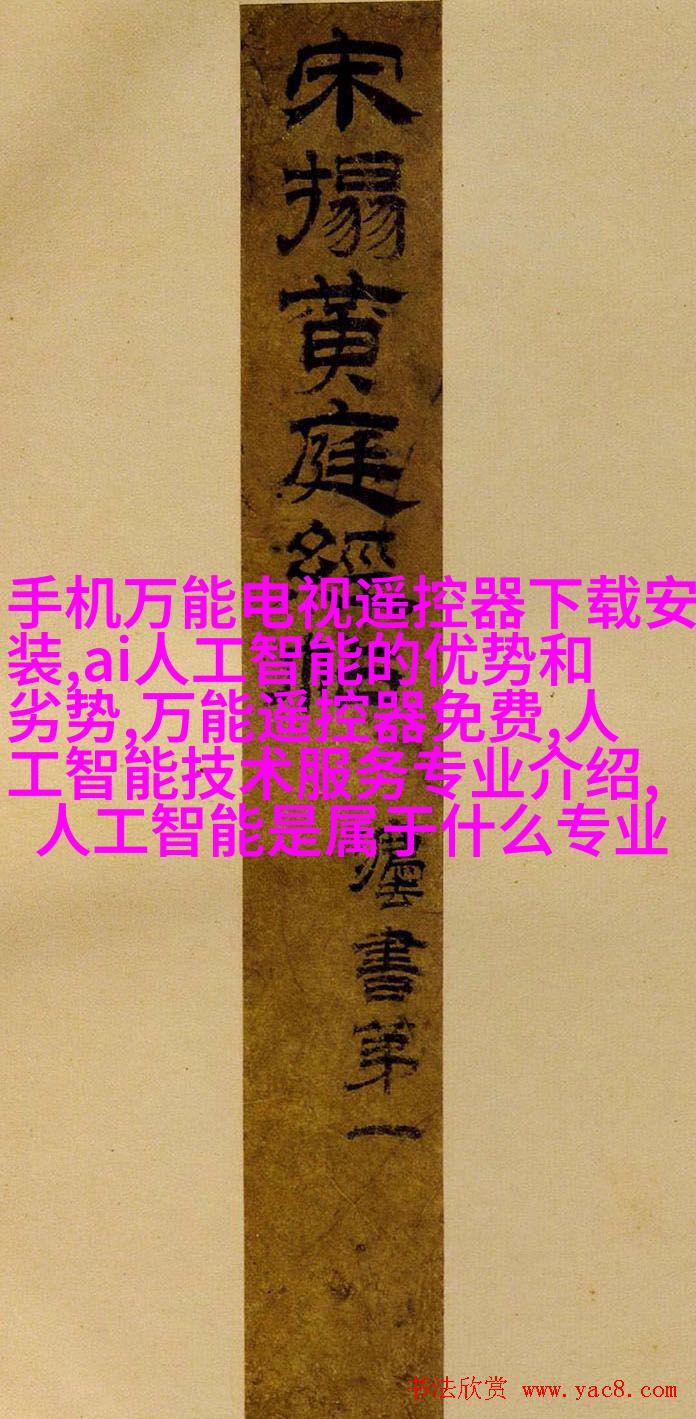 宋搨黄庭經
書第一
手机万能电视遥控器下载安
装,ai人工智能的优势和
劣势,万能遥控器免费,人
工智能技术服务专业介绍,
人工智能是属于什么专业
书法欣赏 www.yac8.com